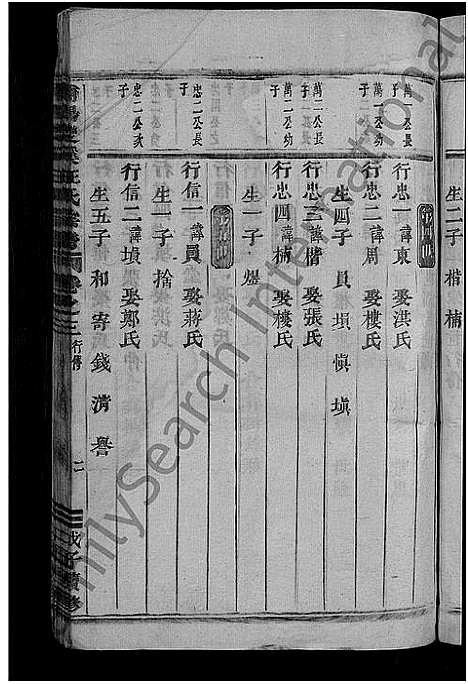 生二子 楷 楠
第四世
萬一公長子
行忠一諱東 娶洪氏
萬一公幼子
行忠二諱周 娶樓氏
生四子 員 塤 愼 塡
萬二公長子
行忠三諱楷 娶張氏
萬二公幼子
行忠四諱楠 娶樓氏
生一子 煜
忠二公長子
行信一諱員 娶蔣氏
生一子 捨
忠二公次子
行信二諱塤 娶鄭氏
生五子 和 寄 錢 淸 譽
行傳
二
戊子續修
FamilySearch International